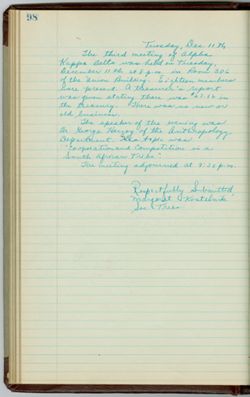 98
Tuesday, Dec. 11th
The third meeting of Alpha
Kappa Delta was held on Tuesday,
December 11th at 8 p.m. in Room 306
of the Union Building. Eighteen members
were present. A treasurer's report
was given stating there was
in the treasury. There was no new or
old business.
The speaker of the evening was
Dr. George Herzog of the Anthropology
Department. His topic was
"Cooperation and Competition in a
South African Tribe."
The meeting adjourned at 9:30 p.m.
Respectfully Submitted,
Margaret
Sec. Treas.